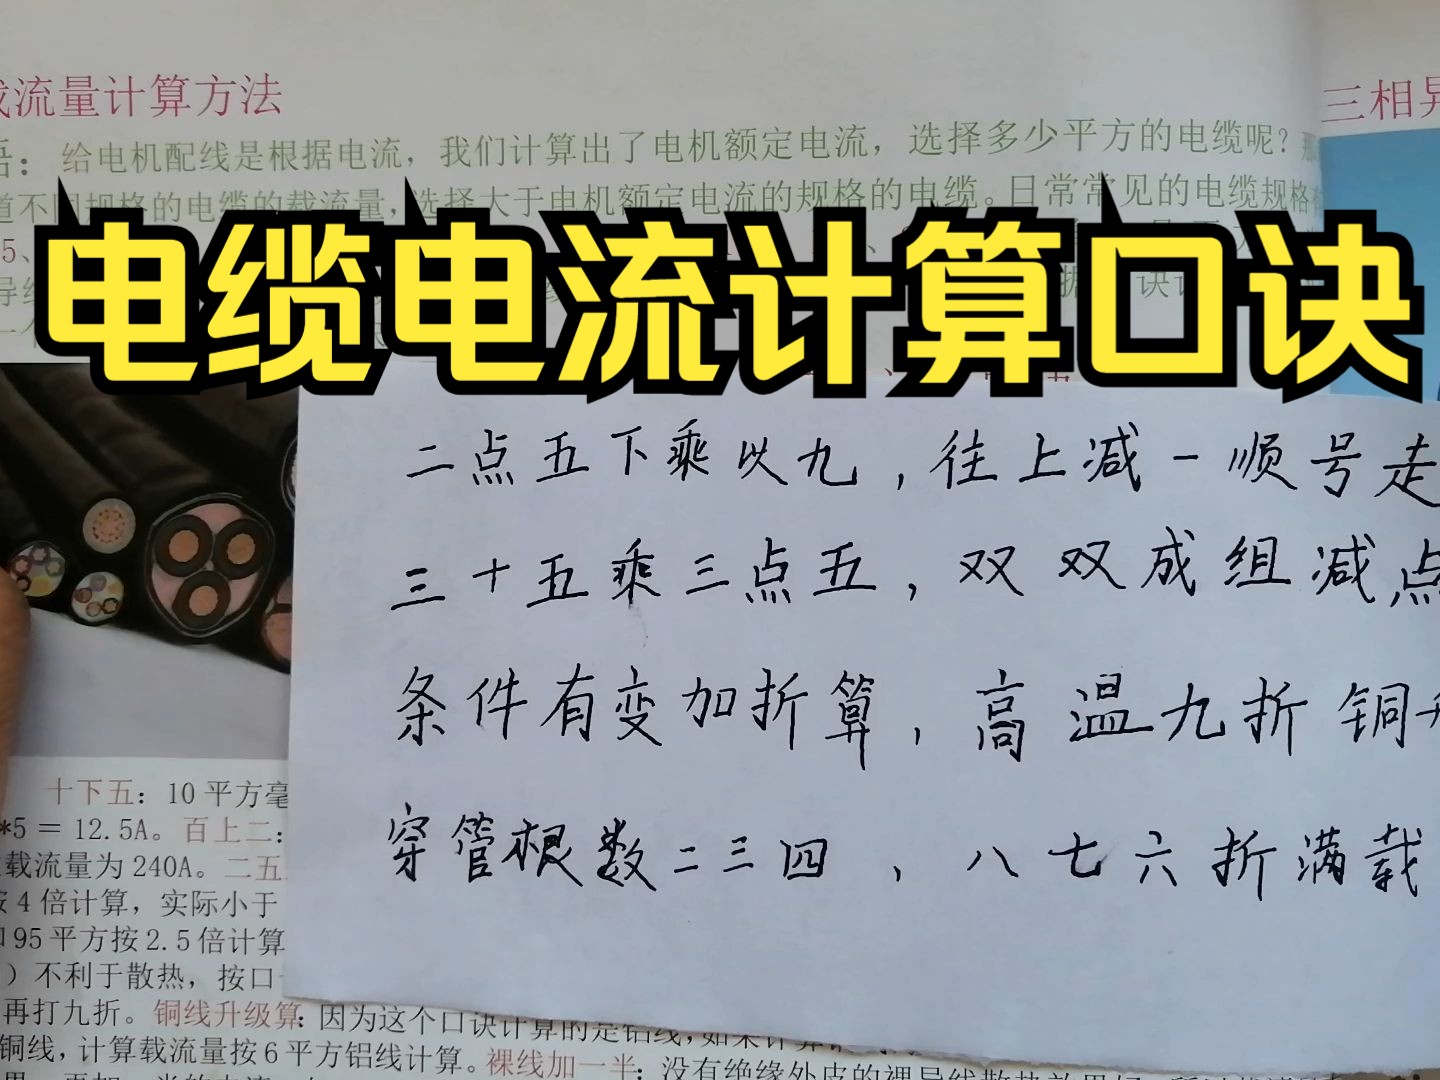 流量计算方法
三相异
给电机配线是根据电流，我们计算出了电机额定电流，选择多少平方的电缆呢？
道不同规格的电缆的载流量，选择大于电机额定电流的规格的电缆。日常常见的电缆规格
电缆电流计算口诀
二点五下乘以九，往上减一顺号走
三十五乘三点五，双双成组减点
条件有变加折算，高温九折铜
穿管根数二三四，八七六折满载
十下五：10平方毫
*5＝12.5A。百上二：
载流量为240A。二五
按4倍计算，实际小于
95平方按2.5倍计算
）不利于散热，按口
再打九折。铜线升级算：因为这个口诀计算的是铝线，如果计算
铜线，计算载流量按6平方铝线计算。裸线加一半：没有绝缘外皮的裸导线散热效果好